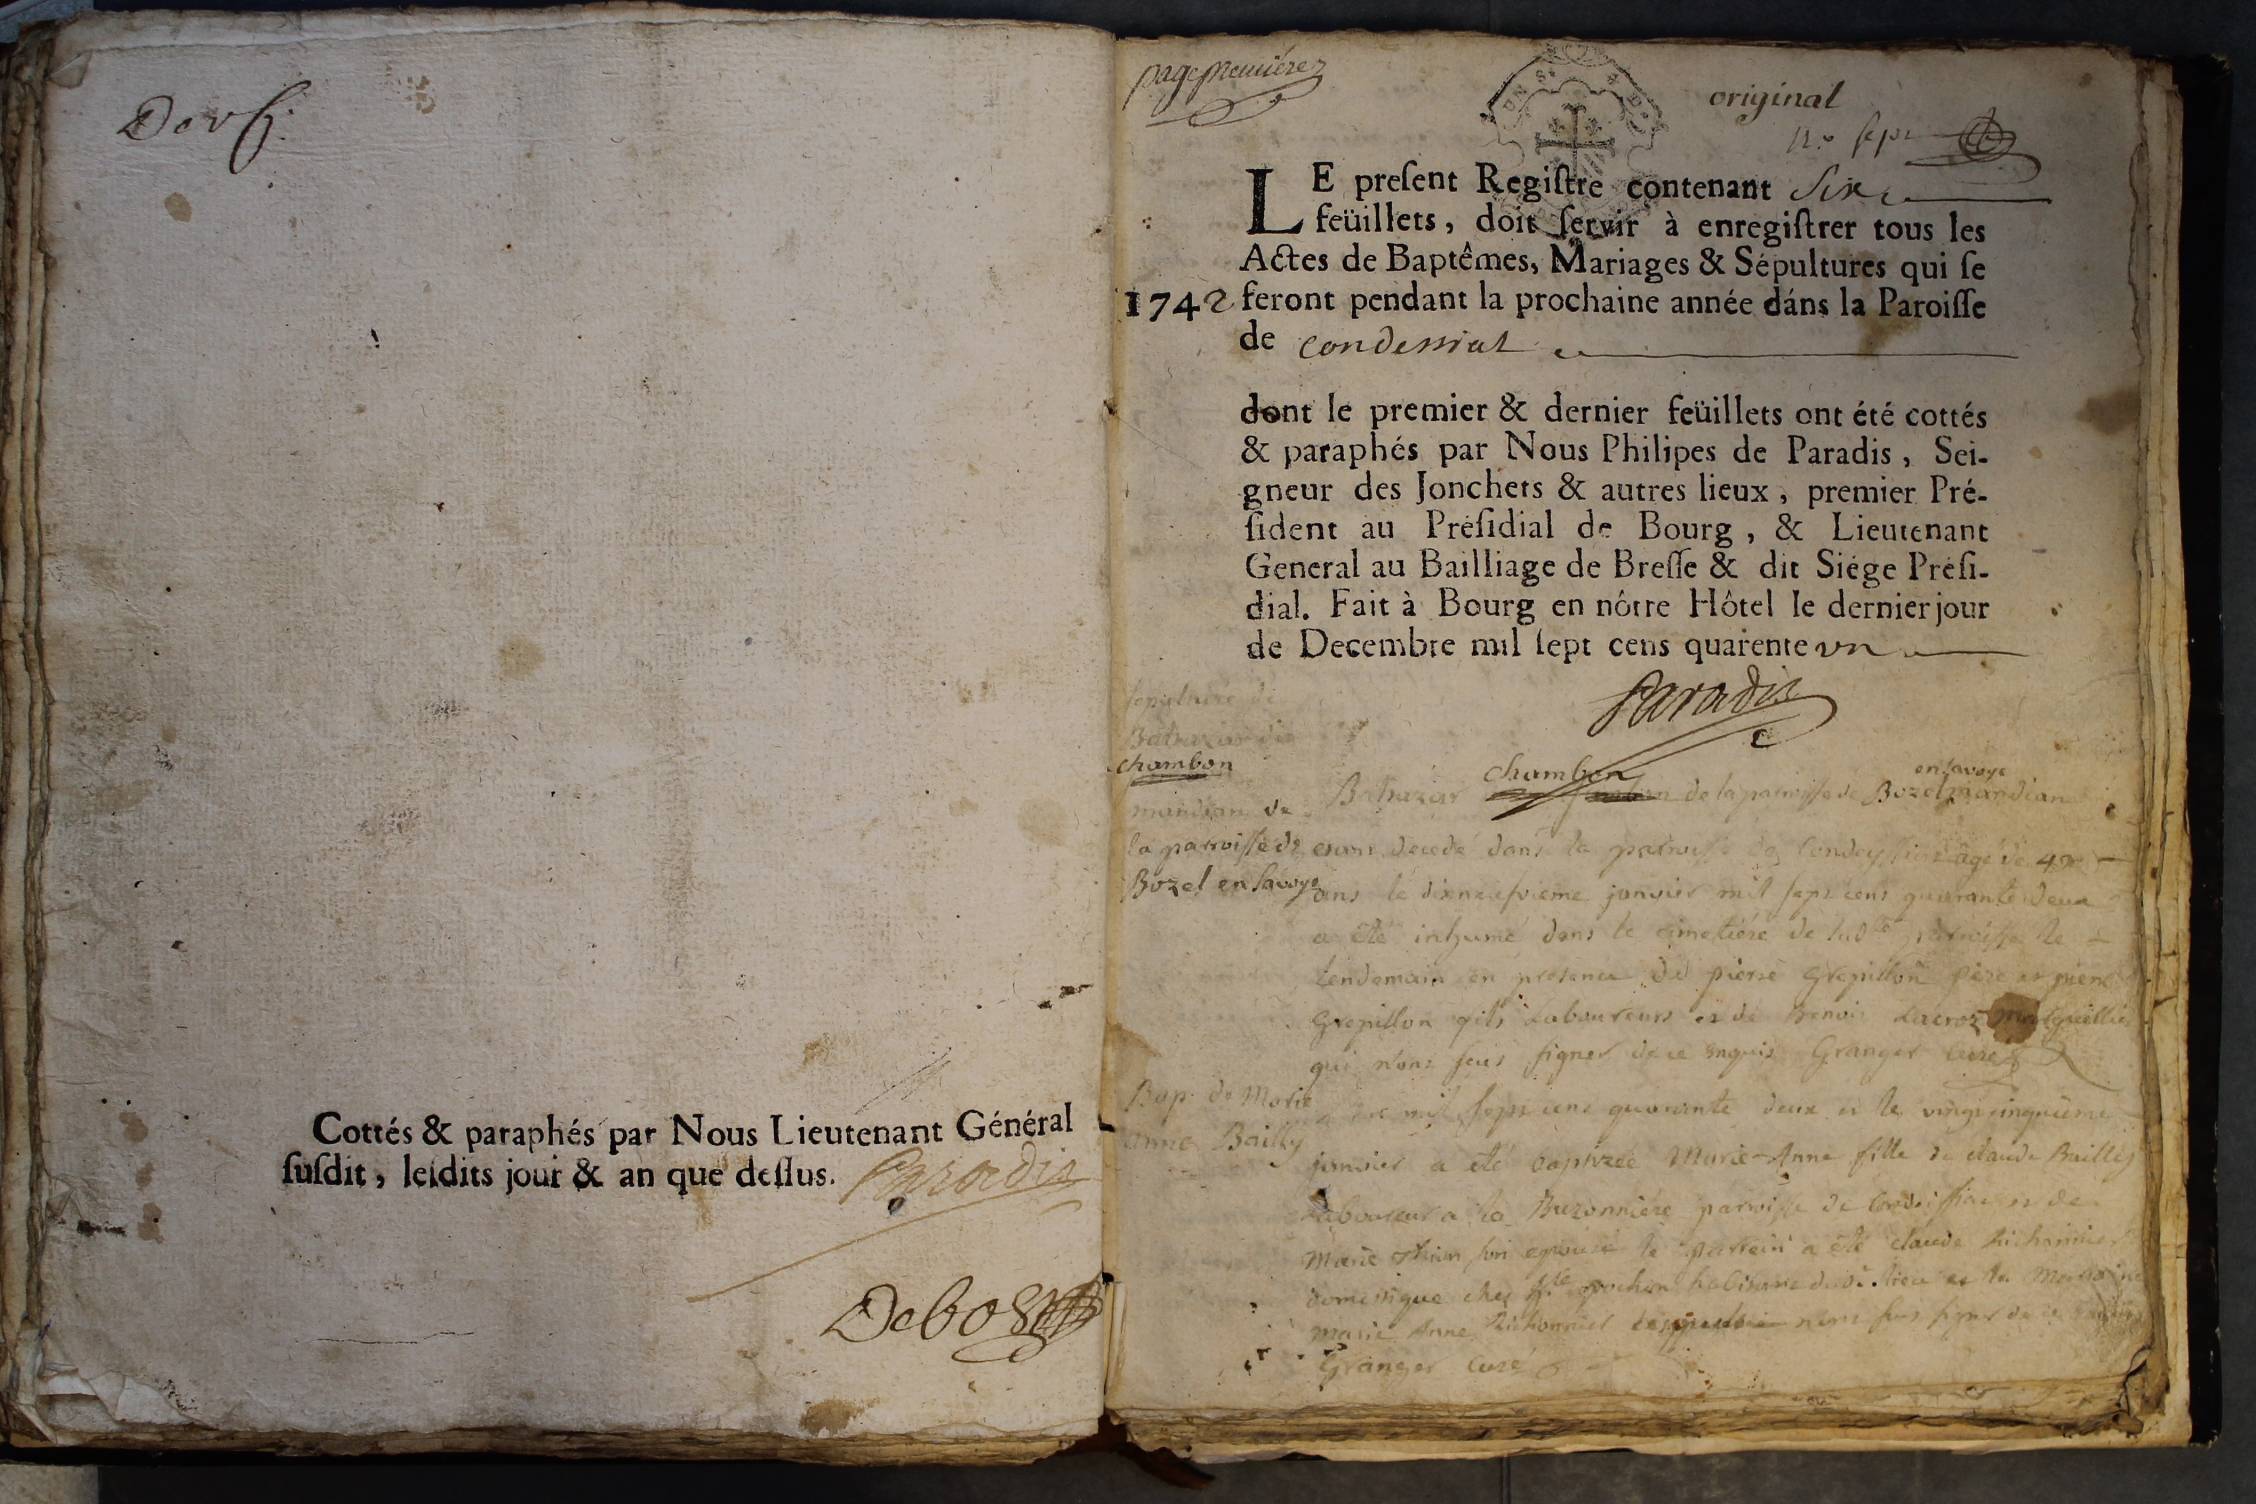 Cottés & paraphés par Nous Lieutenant Général
suſdit, leſdits jour & an que deſſus. Paradis
Debost
page premiere
original
LE preſent Regiſtre contenant Six
feüillets, doit ſervir à enregiſtrer tous les
Actes de Baptêmes, Mariages & Sépultures qui ſe
1742 feront pendant la prochaine année dáns la Paroiſſe
de Condessiat
dont le premier & dernier feüillets ont été cottés
& paraphés par Nous Philipes de Paradis, Sei-
gneur des Jonchets & autres lieux, premier Pré-
ſident au Préſidial de Bourg, & Lieutenant
General au Bailliage de Breſſe & dit Siége Préſi-
dial. Fait à Bourg en nôtre Hôtel le dernier jour
de Decembre mil ſept cens quarente un
Paradis
sepulture de
Batrazar
chambon
mandian de
la parroisse de
Bozel en Savoye
Batrazar chambon de la parroisse de Bozel en savoye mandian
decedé dans la parroisse de Condeyssiat âgé de
ans le dixneufvieme janvier mil sept cens quarante deux
a été inhumé dans le cimetiére de lad.te parroisse le
lendemain en presence de pierre Grepillon père et pierre
Grepillon fils Laboureurs et de Benoit Lacroz
qui n'ont sçus signer de ce enquis Granger Curé
Bap. de Marie
Anne Bailly
mil sept cens quarante deux et le vingt cinquieme
janvier a été baptizée Marie-Anne fille de claude Bailly
laboureur a la Buzonniére parroisse de Condeissiat et de
Marie son epouse le parrein a été claude
domestique chez pochon habitant dud. lieu et la Marraine
Marie Anne n'ont sçus signer de ce enquis
Granger Curé